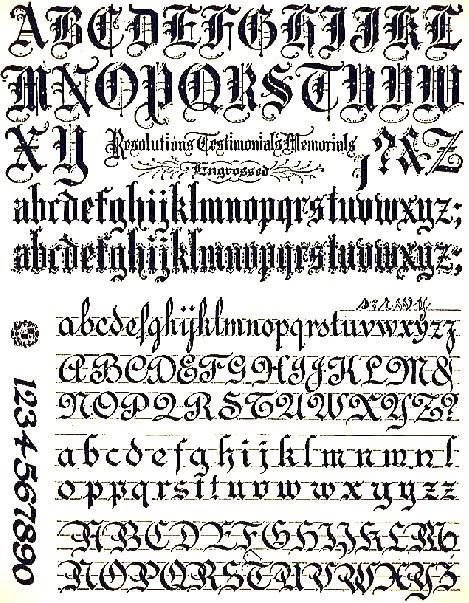 ABCDEFGHIJKL
MNOPQRSTUVW
XY Resolutions Testimonials Memorials ;?&Z
Engrossed
abcdefghijklmnopqrstuvwxyz;
abcdefghijklmnopqrstuvwxyz;
abcdefghijklmnopqrstuvwxyzz
ABCDEFGHIJKLM&
NOPQRSTUVWXYZ?
abcdefghijklmnmnl
oppqrsttuvwxyyzz
ABCDEFGHIJKLM
NOPQRSTUVWXYZ
1234567890